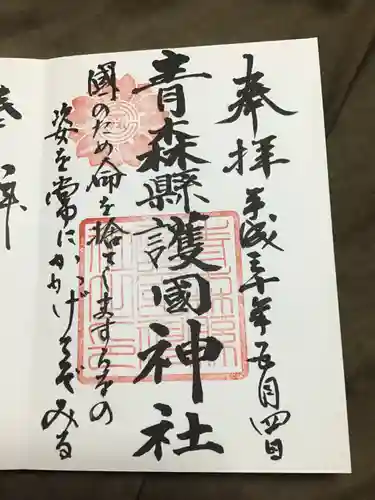 奉拝
平成三十年五月四日
青森縣護國神社
國のため命を捨てしますらをの
姿を常にかかげてぞみる